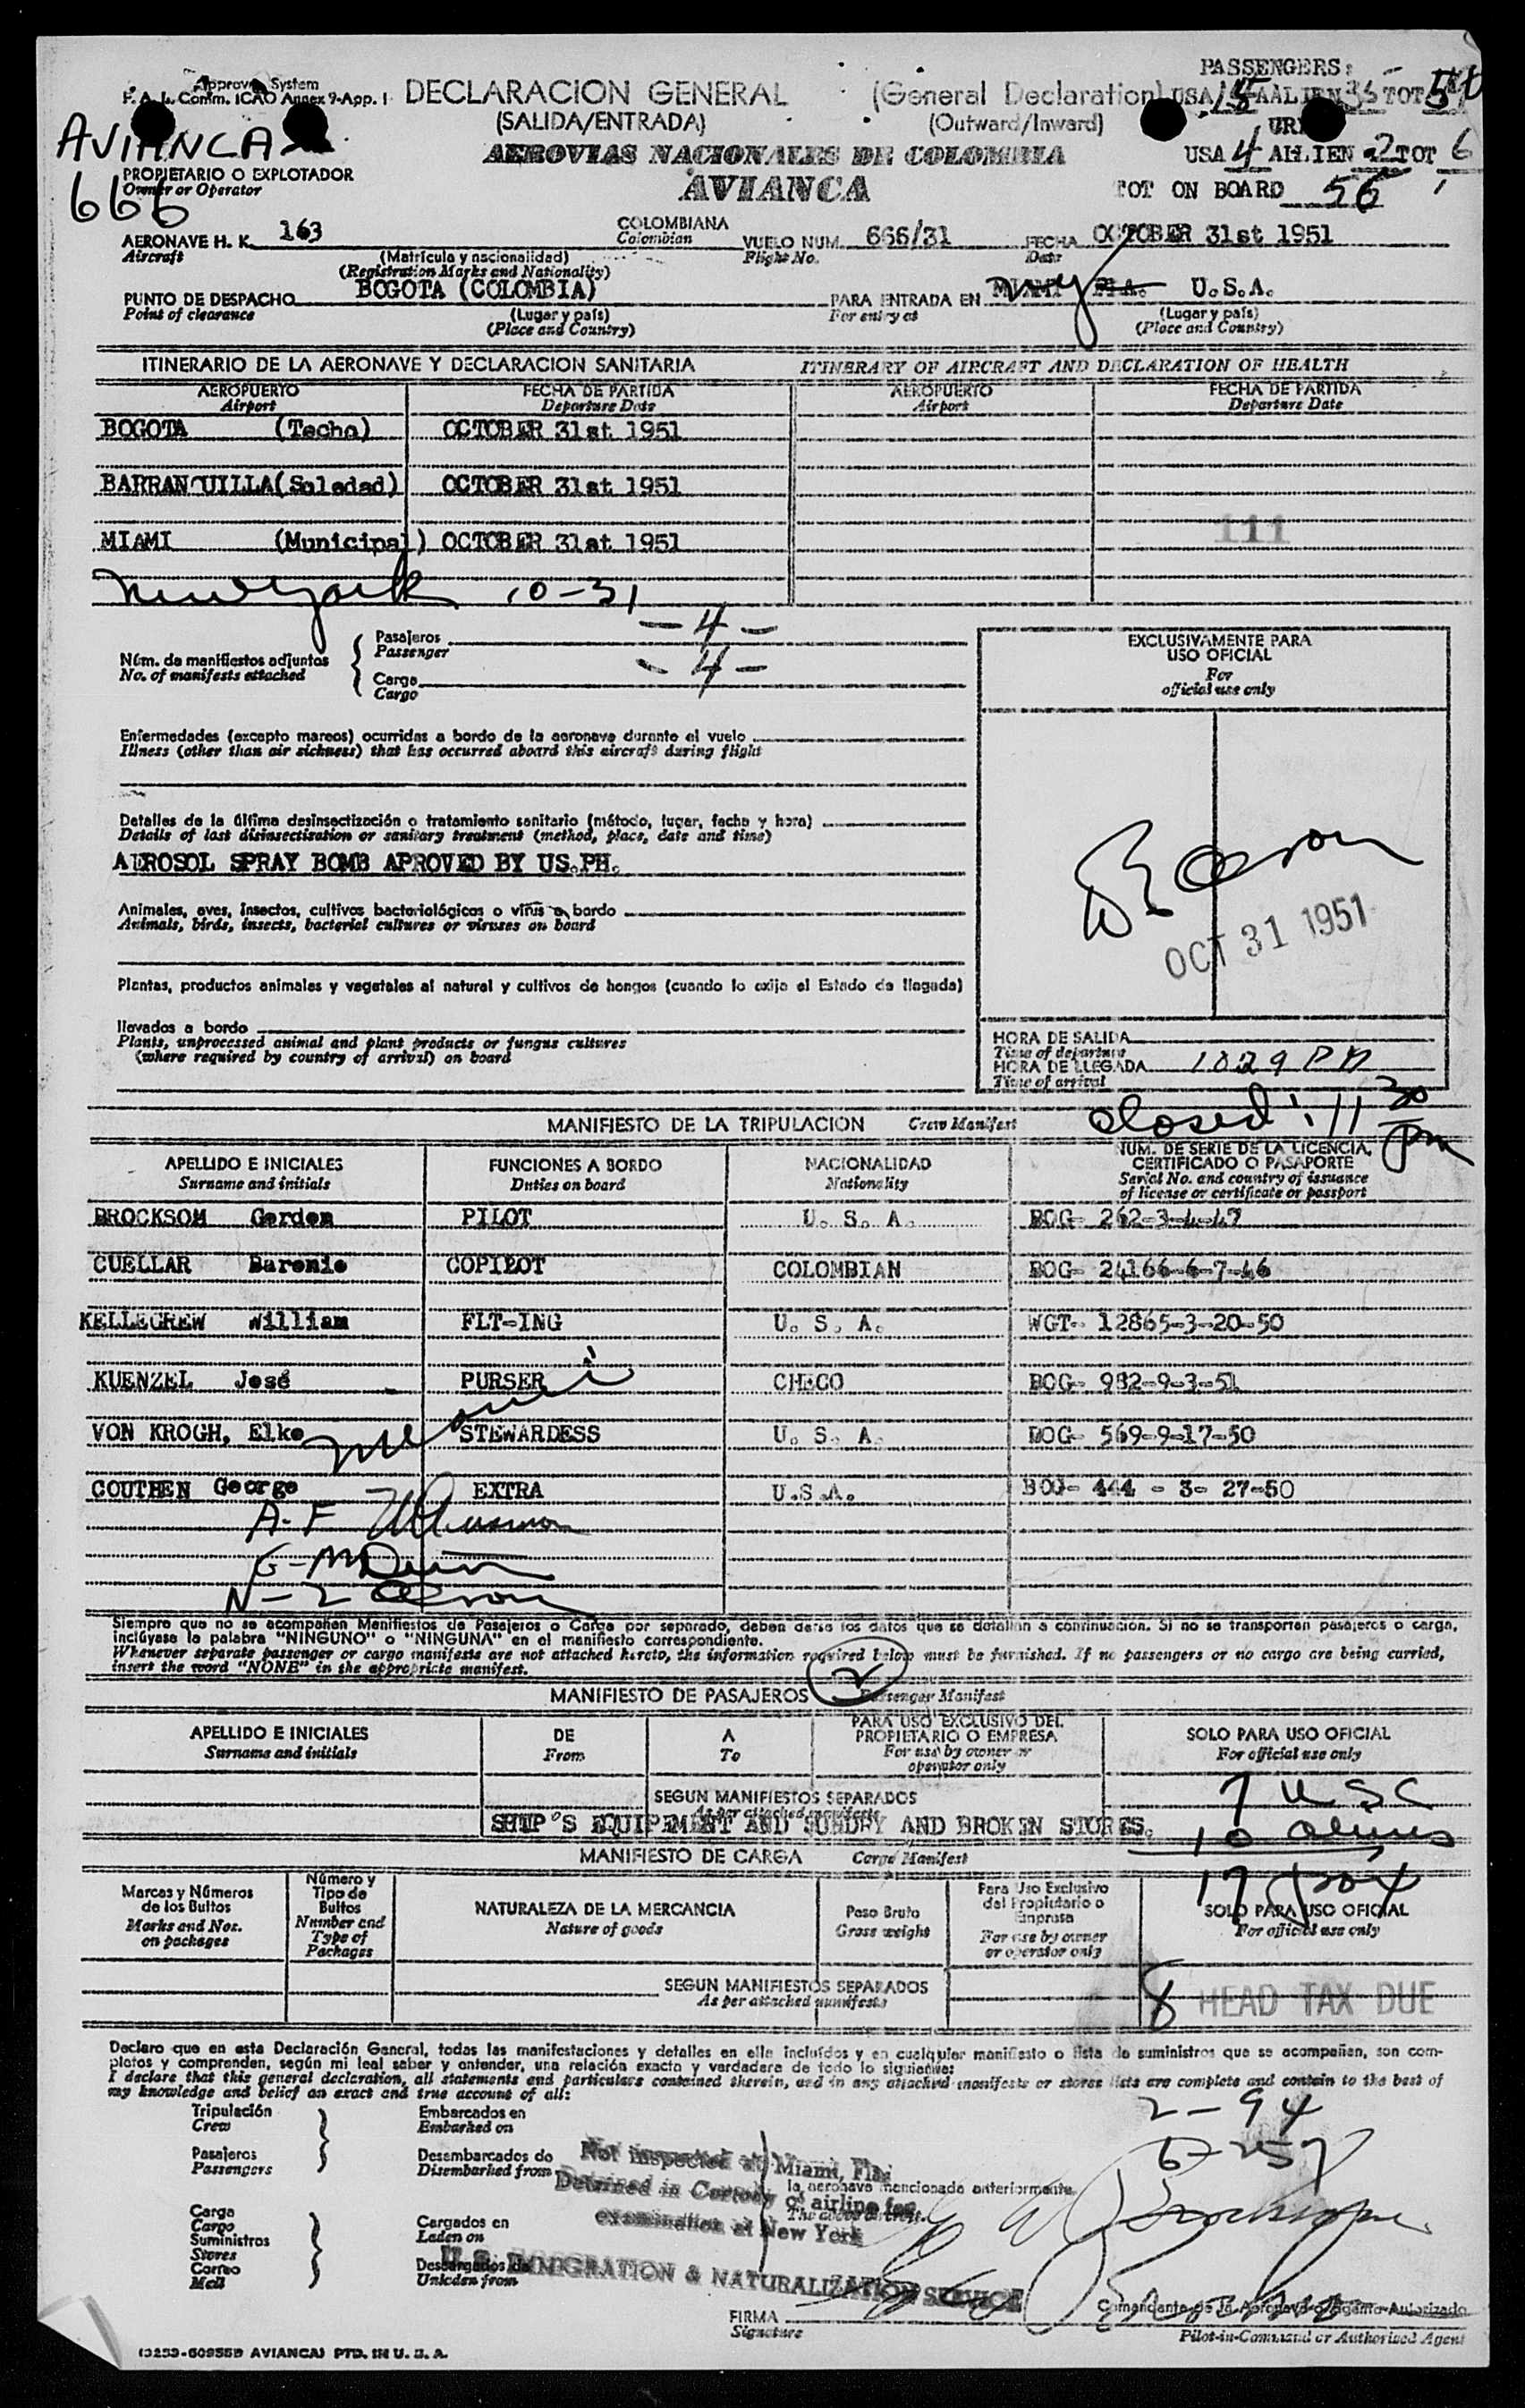 Approved System
F. A. L. Comm. ICAO Annex 9-App. I
DECLARACION GENERAL (General Declaration)
(SALIDA/ENTRADA) (Outward/Inward)
PASSENGERS:
USA 15 ALIEN 35 TOT 50
USA 4 ALIEN 2 TOT 6
TOT ON BOARD 56
AVIANCA
666
AEROVIAS NACIONALES DE COLOMBIA
AVIANCA
PROPIETARIO O EXPLOTADOR
Owner or Operator
AERONAVE H. K. 163 COLOMBIANA VUELO NUM. 666/31 FECHA OCTOBER 31st 1951
Aircraft (Matrícula y nacionalidad) Colombian Flight No. Date
(Registration Marks and Nationality)
PUNTO DE DESPACHO BOGOTA (COLOMBIA) PARA ENTRADA EN MIAMI FLA. NY U.S.A.
Point of clearance (Lugar y país) For entry at (Lugar y país)
(Place and Country) (Place and Country)
ITINERARIO DE LA AERONAVE Y DECLARACION SANITARIA ITINERARY OF AIRCRAFT AND DECLARATION OF HEALTH
AEROPUERTO FECHA DE PARTIDA AEROPUERTO FECHA DE PARTIDA
Airport Departure Date Airport Departure Date
BOGOTA (Techo) OCTOBER 31st 1951
BARRANQUILLA (Soledad) OCTOBER 31st 1951
111
MIAMI (Municipal) OCTOBER 31st 1951
New York 10-31
Núm. de manifiestos adjuntos
No. of manifests attached
Pasajeros -4-
Passenger
Carga -4-
Cargo
EXCLUSIVAMENTE PARA
USO OFICIAL
For
official use only
Enfermedades (excepto mareos) ocurridas a bordo de la aeronave durante el vuelo
Illness (other than air sickness) that has occurred aboard this aircraft during flight
Detalles de la última desinsectización o tratamiento sanitario (método, lugar, fecha y hora)
Details of last disinsectisation or sanitary treatment (method, place, date and time)
AEROSOL SPRAY BOMB APROVED BY US.PH.
Animales, aves, insectos, cultivos bacteriológicos o virus a bordo
Animals, birds, insects, bacterial cultures or viruses on board
OCT 31 1951
Plantas, productos animales y vegetales al natural y cultivos de hongos (cuando lo exija el Estado de llegada)
llevados a bordo
Plants, unprocessed animal and plant products or fungus cultures
(where required by country of arrival) on board
HORA DE SALIDA
Time of departure
HORA DE LLEGADA 1029 PM
Time of arrival
closed: 11 30 pm
MANIFIESTO DE LA TRIPULACION Crew Manifest
APELLIDO E INICIALES FUNCIONES A BORDO NACIONALIDAD NUM. DE SERIE DE LA LICENCIA,
CERTIFICADO O PASAPORTE
Surname and initials Duties on board Nationality Serial No. and country of issuance
of license or certificate or passport
BROCKSOM Gordon PILOT U. S. A. BOG- 262-3-4-47
CUELLAR Baronio COPILOT COLOMBIAN BOG- 24166-6-7-46
KELLEGREW William FLT-ING U. S. A. WGT- 12865-3-20-50
KUENZEL José PURSER CHECO BOG- 982-9-3-51
VON KROGH, Elke STEWARDESS U. S. A. BOG- 569-9-17-50
Miami
COUTHEN George EXTRA U.S.A. BOG- 444 - 3- 27-50
A-F
G-M
N-Z
Siempre que no se acompañen Manifiestos de Pasajeros o Carga por separado, deben darse los datos que se detallan a continuación. Si no se transportan pasajeros o carga,
inclúyase la palabra "NINGUNO" o "NINGUNA" en el manifiesto correspondiente.
Whenever separate passenger or cargo manifests are not attached hereto, the information required below must be furnished. If no passengers or no cargo are being carried,
insert the word "NONE" in the appropriate manifest.
2
MANIFIESTO DE PASAJEROS Passenger Manifest
APELLIDO E INICIALES DE A PARA USO EXCLUSIVO DEL PROPIETARIO O EMPRESA SOLO PARA USO OFICIAL
Surname and initials From To For use by owner or operator only For official use only
SEGUN MANIFIESTOS SEPARADOS
As per attached manifests
7 USC
SHIP'S EQUIPEMENT AND SUNDRY AND BROKEN STORES.
10 aliens
MANIFIESTO DE CARGA Cargo Manifest
17
Marcas y Números de los Bultos Número y Tipo de Bultos NATURALEZA DE LA MERCANCIA Peso Bruto Para Uso Exclusivo del Propietario o Empresa SOLO PARA USO OFICIAL
Marks and Nos. on packages Number and Type of Packages Nature of goods Gross weight For use by owner or operator only For official use only
SEGUN MANIFIESTOS SEPARADOS
As per attached manifests
8 HEAD TAX DUE
Declaro que en esta Declaración General, todas las manifestaciones y detalles en ella incluídos y en cualquier manifiesto o lista de suministros que se acompañan, son com-
pletos y comprenden, según mi leal saber y entender, una relación exacta y verdadera de todo lo siguiente:
I declare that this general declaration, all statements and particulars contained therein, and in any attached manifests or stores lists are complete and contain to the best of
my knowledge and belief an exact and true account of all:
2-94
Tripulación Embarcados en
Crew Embarked on
Pasajeros Desembarcados de
Passengers Disembarked from
Not inspected at Miami, Fla.
Detained in Custody of airline for
examination at New York
U.S. IMMIGRATION & NATURALIZATION SERVICE
la aeronave mencionada anteriormente.
The above aircraft.
Carga Cargados en
Cargo Laden on
Suministros
Stores
Correo Descargados de
Mail Unladen from
FIRMA
Signature
Comandante de la Aeronave o Agente Autorizado
Pilot-in-Command or Authorised Agent
AVIANCA) PTD. IN U. S. A.